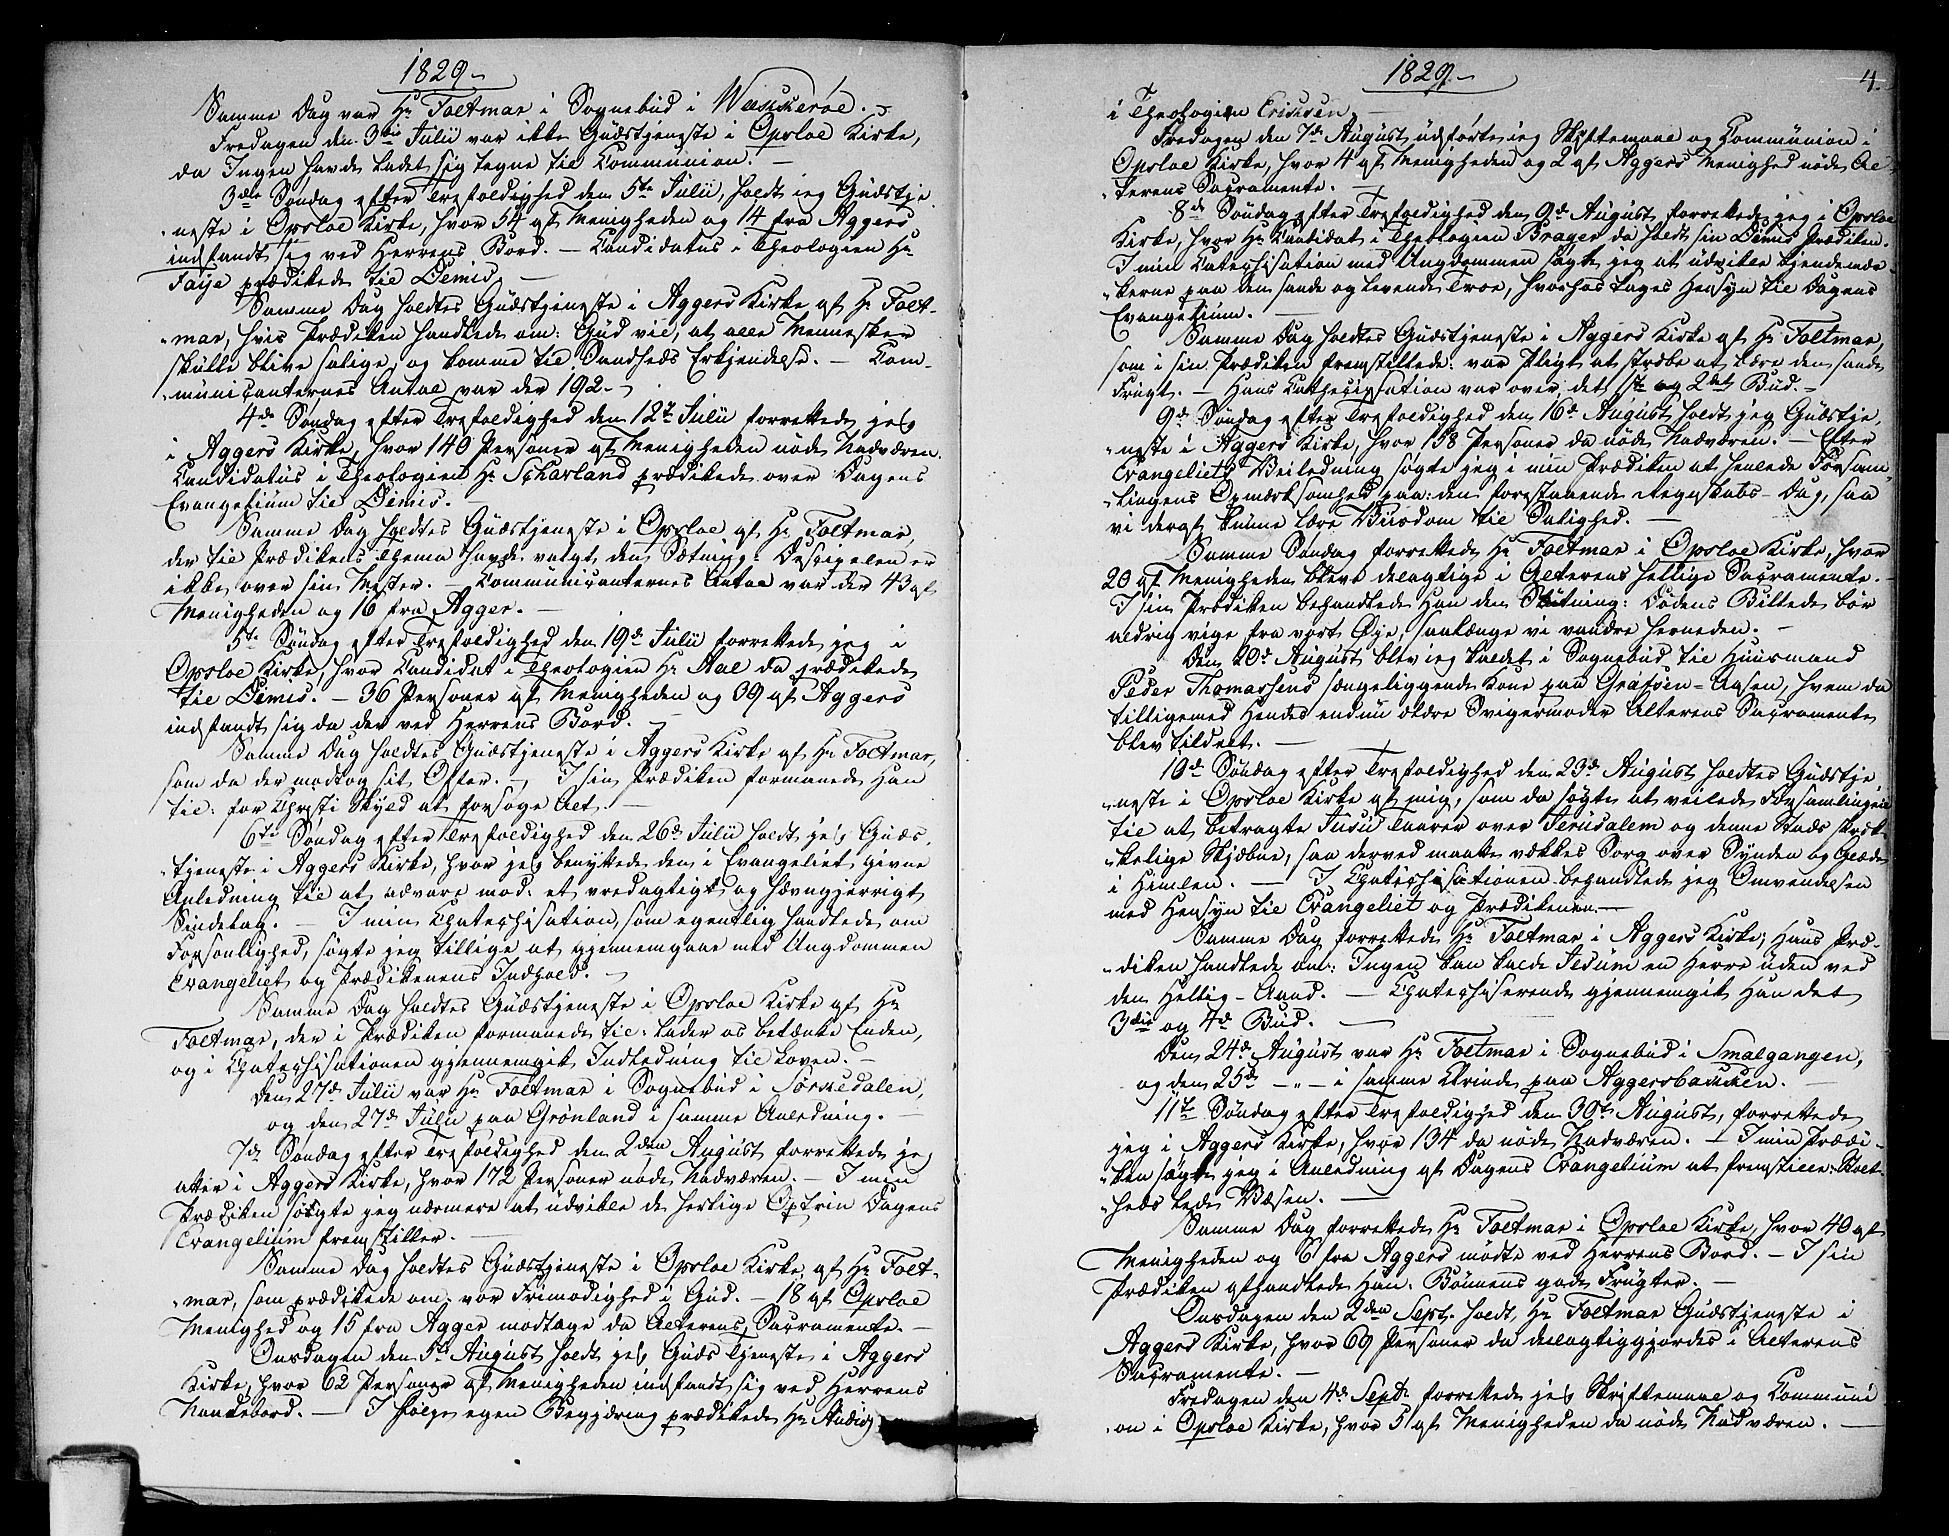 1829.
Samme Dag var Hr Foltmar i Sognebud i Wækkerøe.
Fredagen den 3die Julii var ikke Gudstjeneste i Opsloe Kirke,
da Ingen havde ladet sig tegne til Communion.
3die Søndag efter Trefoldighed den 5te Julii, holdt jeg Gudstje-
neste i Opsloe Kirke, hvor 54 af Menigheden og 14 fra Aggers
indfandt sig ved Herrens Bord. — Candidatus i Theologien Hr
Faije prædikede til Dimis.
Samme Dag holdtes Gudstjeneste i Aggers Kirke af Hr Folt-
mar, hvis Prædiken handlede om: Gud vil, at alle Mennesker
skulle blive salige, og komme til Sandheds Erkjendelse. — Com-
municanternes Antal var der 192.
4de Søndag efter Trefoldighed den 12te Julii forrettede jeg
i Aggers Kirke, hvor 140 Personer af Menigheden nøde Nadveren.
Candidatus i Theologien Hr Scharland prædikede over Dagens
Evangelium til Dimis.
Samme Dag holdtes Gudstjeneste i Opsloe af Hr Foltmar,
der til Prædikens Thema havde valgt den Sætning: Descipelen er
ikke over sin Mester. — Communicanternes Antal var der 43 af
Menigheden og 16 fra Agger.
5te Søndag efter Trefoldighed den 19de Julii forrettede jeg i
Opsloe Kirke, hvor Candidat i Theologien Hr Aal da prædikede
til Dimis. — 36 Personer af Menigheden og 69 af Aggers
indfandt sig da der ved Herrens Bord.
Samme Dag holdtes Gudstjeneste i Aggers Kirke af Hr Foltmar,
som da der modtog sit Offer. — I sin Prædiken formanede Han
til: for Christi Skyld at forsage Alt.
6te Søndag efter Trefoldighed den 26de Julii holdt jeg Guds-
tjeneste i Aggers Kirke, hvor jeg benyttede den i Evangeliet givne
Anledning til at advare mod: et vredagtigt og hævngjerrigt
Sindelag. — I min Chatechisation, som egentlig handlede om
Forsonlighed, søgte jeg tillige at gjennemgaae med Ungdommen
Evangeliet og Prædikenens Indhold.
Samme Dag holdtes Gudstjeneste i Opsloe Kirke af Hr
Foltmar, der i Prædiken formanede til: lader os betænke Enden,
og i Chatechisationen gjennemgik Indledning til Loven.
Den 27de Julii var Hr Foltmar i Sognebud i Sørkedalen,
og den 27de Julii paa Grønland i samme Anledning.
7de Søndag efter Trefoldighed den 2den August forrettede jeg
atter i Aggers Kirke, hvor 172 Personer nøde Nadveren. — I min
Prædiken søgte jeg nærmere at udvikle de herlige Optrin Dagens
Evangelium fremstiller.
Samme Dag holdtes Gudstjeneste i Opsloe Kirke af Hr Folt-
mar, som prædikede om: vor Frimodighed i Gud. — 18 af Opsloe
Menighed og 15 fra Agger modtoge da Alterens Sacramente.
Onsdagen den 5te August holdt jeg Guds Tjeneste i Aggers
Kirke, hvor 62 Personer af Menigheden indfandt sig ved Herrens
Naadebord. — I følge egen Begjæring prædikede Hr Studios
1829.
4.
i Theologien Eriksen.
Fredagen den 7de August, udførte jeg Skriftemaal og Communion i
Opsloe Kirke, hvor 4 af Menigheden og 2 af Aggers Menighed nøde Al-
terens Sacramente.
8de Søndag efter Trefoldighed den 9de August forrettede jeg i Opsloe
Kirke, hvor Hr Cantidat i Theologien Brager da holdt sin Dimis Prædiken.
I min Catechisation med Ungdommen søgte jeg at udvikle Kjendemær-
kerne paa den sande og levende Troe, hvorhos toges Hensyn til Dagens
Evangelium.
Samme Dag holdtes Gudstjeneste i Aggers Kirke af Hr Foltmar,
som i sin Prædiken fremstillede: vor Pligt at stræbe at bære den sande
Frugt. — Hans Cathecisation var over det 1te og 2det Bud.
9de Søndag efter Trefoldighed den 16de August holdt jeg Gudstje-
neste i Aggers Kirke, hvor 158 Personer da nøde Nadveren. — Efter
Evangeliets Veiledning søgte jeg i min Prædiken at henlede Forsam-
lingens Opmærksomhed paa: den forestaaende Regnskabs-Dag, saa
vi deraf kunne lære Viisdom til Salighed.
Samme Søndag forrettede Hr Foltmar i Opsloe Kirke, hvor
20 af Menigheden bleve delagtige i Alterens hellige Sacramente.
I sin Prædiken behandlede Han den Sætning: Dødens Billede bør
aldrig vige fra vort Øje, saalænge vi vandre herneden.
Den 20de August blev jeg kaldet i Sognebud til Huusmand
Peder Thomassens sængeliggende Kone paa Grafsen-Aasen, hvem da
tilligemed Hendes endnu ældre Svigermoder Alterens Sacramente
blev tildelt.
10de Søndag efter Trefoldighed den 23de August holdtes Gudstje-
neste i Opsloe Kirke af mig, som da søgte at veilede Forsamlingen
til at betragte Jesu Taarer over Jerusalem og denne Stads skræk-
kelige Skjæbne, saa derved maatte vækkes Sorg over Synden og Glæde
i Himlen. — I Chatechisationen behandlede jeg Omvendelsen
med Hensyn til Evangeliet og Prædikenen.
Samme Dag forrettede Hr Foltmar i Aggers Kirke; Hans Præ-
diken handlede om: Ingen kan kalde Jesum en Herre uden ved
den Hellig-Aand. — Chatechiserende gjennemgik Han det
3die og 4de Bud.
Den 24de August var Hr Foltmar i Sognebud i Smalgangen,
og den 25de — „ — i samme Ærinde paa Aggersbakken.
11te Søndag efter Trefoldighed den 30te August, forrettede
jeg i Aggers Kirke, hvor 134 da nøde Nadveren. — I min Prædi-
ken søgte jeg i Anledning af Dagens Evangelium at fremstille: Stolt-
heds lede Væsen.
Samme Dag forrettede Hr Foltmar i Opsloe Kirke, hvor 40 af
Menigheden og 6 fra Aggers mødte ved Herrens Bord. — I sin
Prædiken afhandlede Han: Bønnens gode Frugter.
Onsdagen den 2den Sept. holdt Hr Foltmar Gudstjeneste i
Aggers Kirke, hvor 69 Personer da delagtiggjordes i Alterens
Sacramente.
Fredagen den 4de Septr. forrettede jeg Skriftemaal og Communi-
on i Opsloe Kirke, hvor 5 af Menigheden da nøde Nadveren.